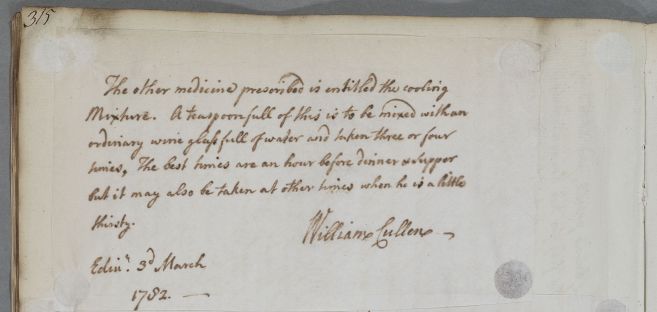 315
The other medicine prescribed is entitled the cooling
Mixture. A teaspoonfull of this is to be mixed with an
ordinary wine glassfull of water and taken three or four
times, The best times are an hour before dinner & supper
but it may also be taken at other times when he is a little
thirsty.
William Cullen
Edinr. 3d March
1782.